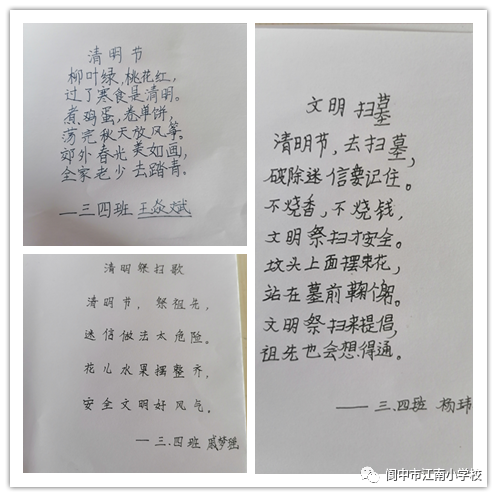 清明节
柳叶绿,桃花红,
过了寒食是清明。
煮鸡蛋,卷单饼,
荡完秋天放风筝。
郊外春光美如画,
全家老少去踏青。
—三四班 王焱斌
清明祭扫歌
清明节,祭祖先,
迷信做法太危险。
花儿水果摆整齐,
安全文明好风气。
—三.四班 戚梦瑶
文明扫墓
清明节,去扫墓,
破除迷信要记住。
不烧香,不烧钱,
文明祭扫才安全。
坟头上面摆束花,
站在墓前鞠个躬。
文明祭扫来提倡,
祖先也会想得通。
——三.四班 杨玮
阆中市江南小学校